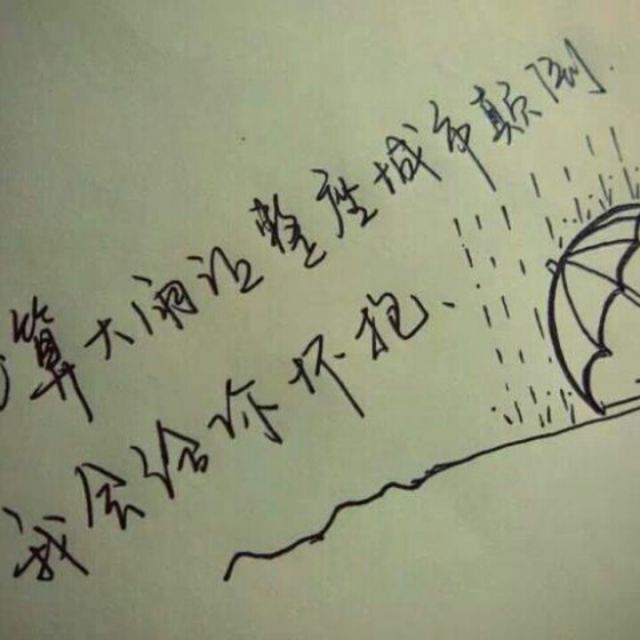 算大雨让整座城市颠倒.
我会给你怀抱、